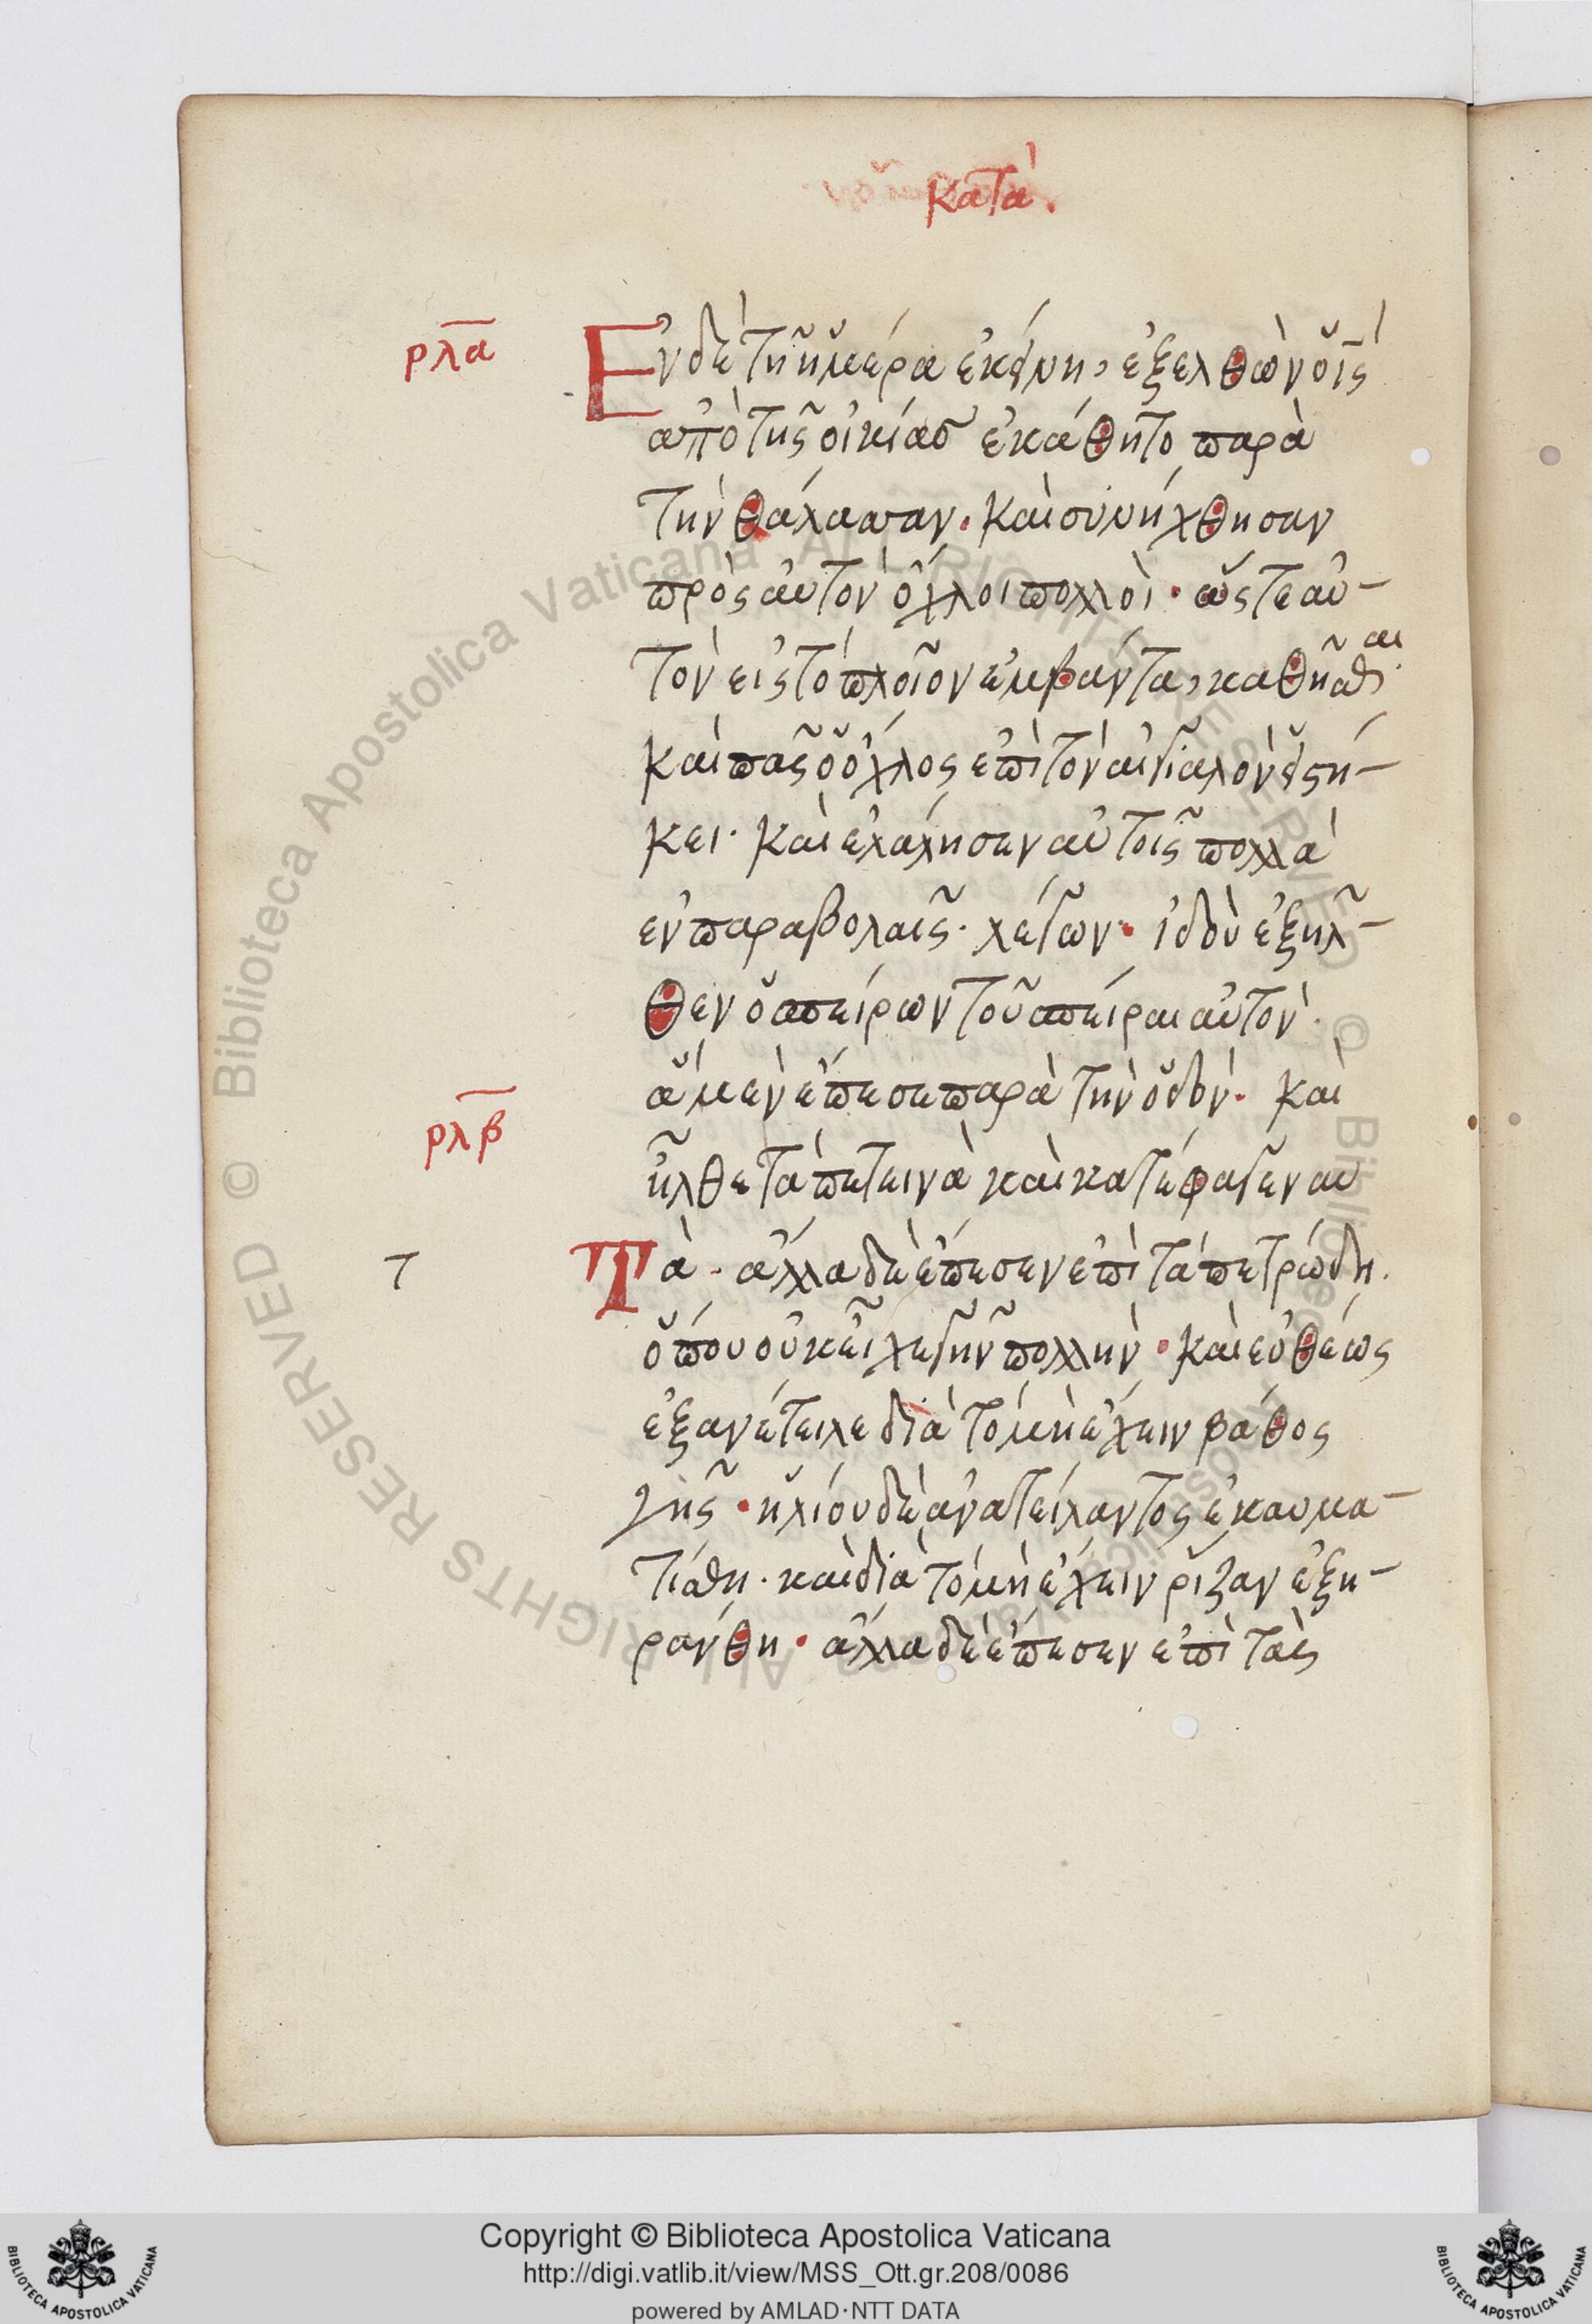 κατὰ.
ρλα
Ἐν δὲ τῆ ἡμέρα ἐκείνη, ἐξελθὼν ὁ ις
ἀπὸ τῆς οἰκίας ἐκάθητο παρὰ
τὴν θάλασσαν. καὶ συνήχθησαν
πρὸς αὐτὸν ὄχλοι πολλοὶ. ὥστε αὐ-
τὸν εἰς τὸ πλοῖον ἐμβάντα, καθῆσθαι.
καὶ πᾶς ὁ ὄχλος ἐπὶ τὸν αἰγιαλὸν εἱστή-
κει. καὶ ἐλάλησεν αὐτοῖς πολλὰ
ἐν παραβολαῖς. λέγων. ἰδοὺ ἐξῆλ-
θεν ὁ σπείρων τοῦ σπεῖραι αὐτὸν.
ρλβ
ἃ μὲν ἔπεσε παρὰ τὴν ὁδόν. καὶ
ἦλθε τὰ πετεινὰ καὶ κατέφαγεν αυ
τ
Τὰ. ἄλλα δὲ ἔπεσεν ἐπὶ τὰ πετρώδη.
ὅπου οὐκ εἶχε γῆν πολλὴν. καὶ εὐθέως
ἐξανέτειλε διὰ τὸ μὴ ἔχειν βάθος
γῆς. ἡλίου δὲ ἀνατείλαντος ἐκαυμα-
τίσθη. καὶ διὰ τὸ μὴ ἔχειν ρίζαν ἐξη-
ράνθη. ἄλλα δὲ ἔπεσεν ἐπὶ τὰς
Biblioteca Apostolica Vaticana ALL RIGHTS RESERVED ©
Copyright © Biblioteca Apostolica Vaticana
http://digi.vatlib.it/view/MSS_Ott.gr.208/0086
powered by AMLAD·NTT DATA
BIBLIOTECA APOSTOLICA VATICANA
BIBLIOTECA APOSTOLICA VATICANA